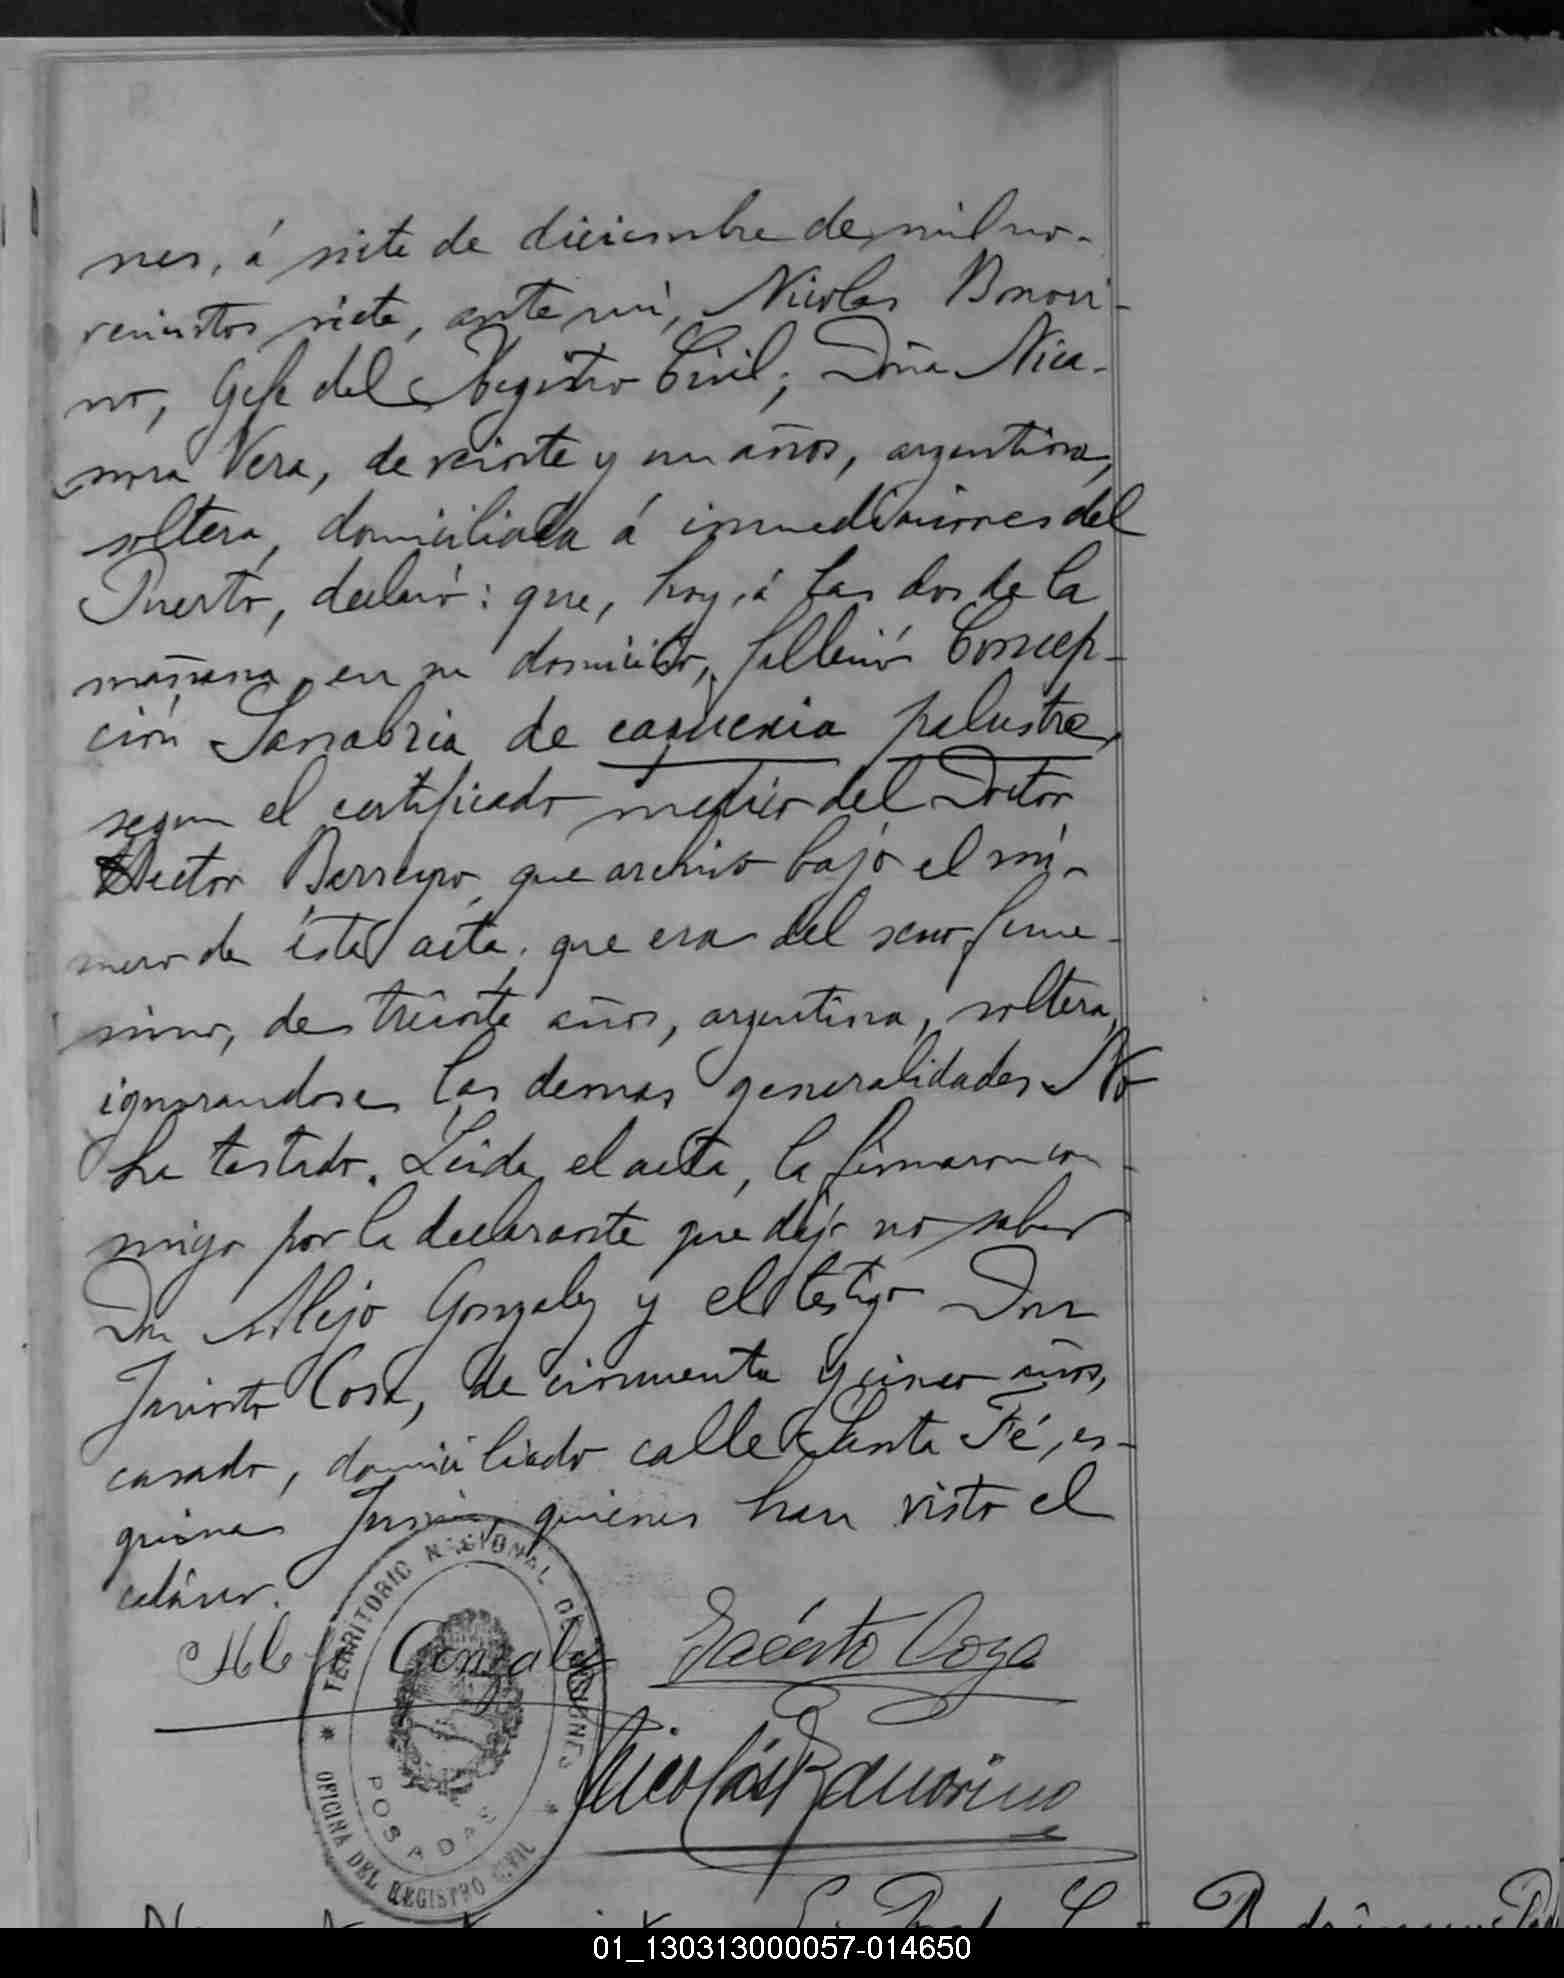 nes, á siete de diciembre de mil no-
vecientos siete, ante mi, Nicolas Bonori-
no, Gefe del Registro Civil; Doña Nica-
nora Vera, de veinte y un años, argentina,
soltera, domiciliada á inmediaciones del
Puerto, declaró: que, hoy, á las dos de la
mañana, en su domicilio, falleció Concep-
ción Sanabria de caquexia palustre,
segun el certificado medico del Doctor
Hector Barreyro, que archivo bajo el nú-
mero de ésta acta, que era del sexo feme-
nino, de treinta años, argentina, soltera,
ignorandose las demas generalidades. No
ha testado. Leida el acta, la firmaron con-
migo por la declarante que dijo no saber
Don Alejo Gonzalez y el testigo Don
Jacinto Cosa, de cincuenta y cinco años,
casado, domiciliado calle Santa Fé, es-
quina Junin, quienes han visto el
cadáver.
Alejo Gonzalez Jacinto Coza
Nicolás Bonorino
TERRITORIO NACIONAL DE MISIONES
OFICINA DEL REGISTRO CIVIL
POSADAS
01_130313000057-014650